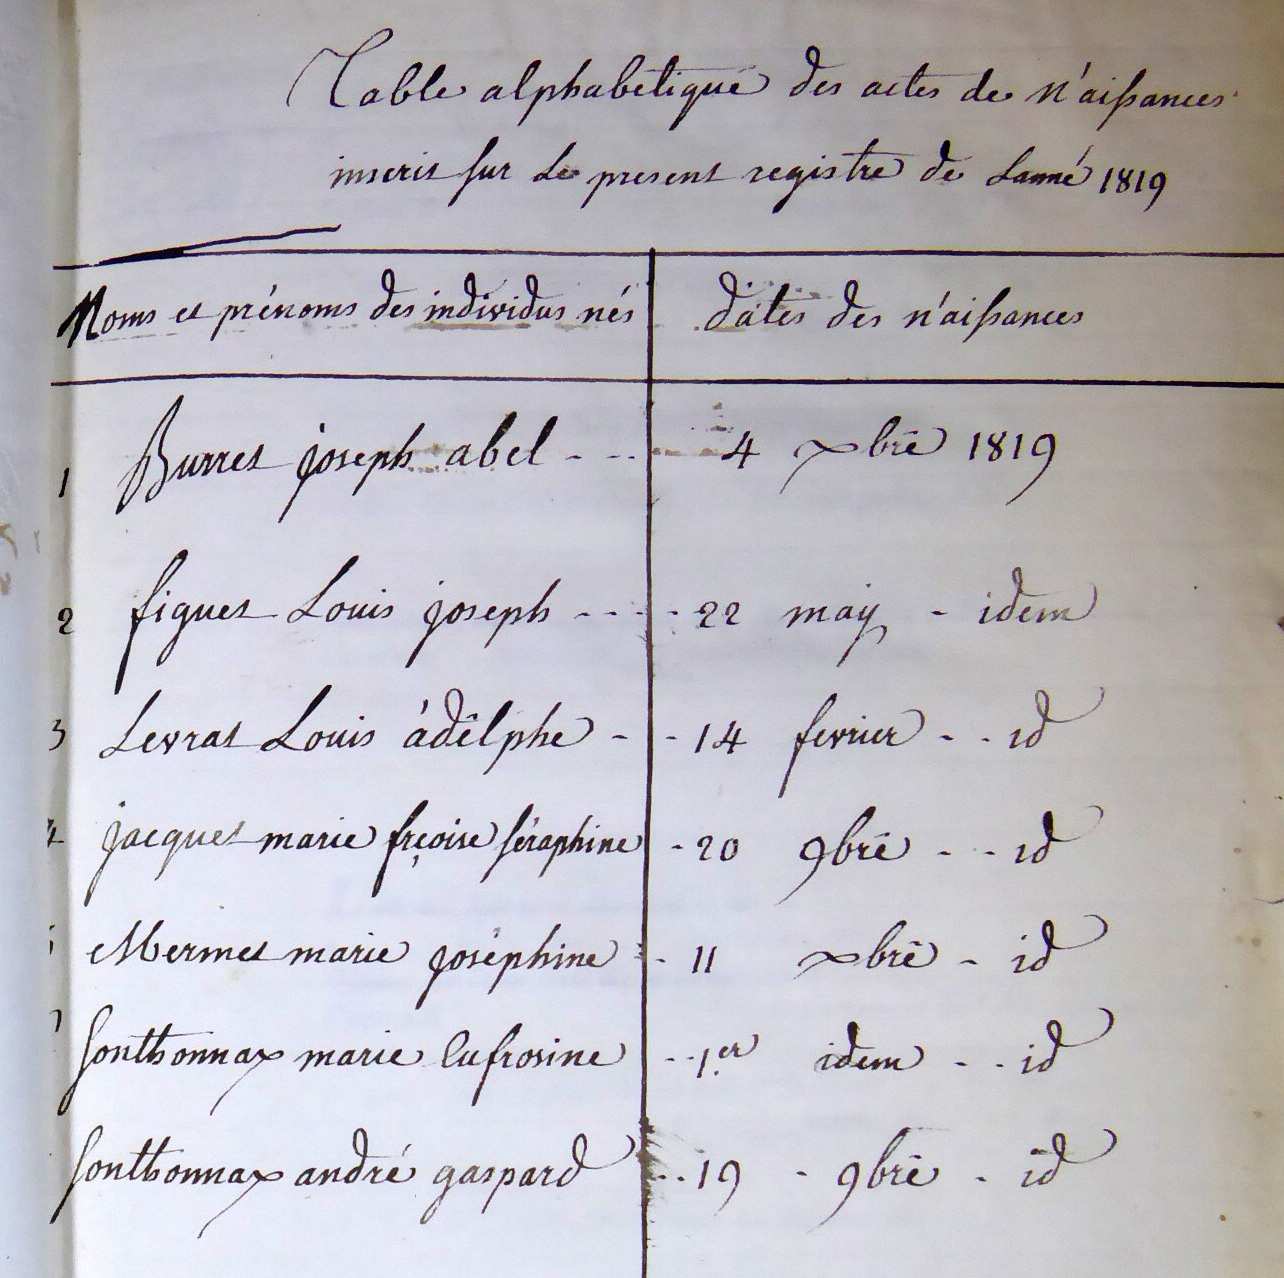 Table alphabetique des actes de n'aissances
inscrit sur Le present registre de Lanné 1819
Noms et prénoms des individus nés dates des n'aissances
1 Burret joseph abel - - - 4 xbrē 1819
2 figuet Louis joseph - - - - 22 may - idem
3 Levrat Louis àdêlphe - - 14 fevrier - - id
4 jacquet marie frçoise séraphine - 20 9brē - - id
Mermet marie joséphine - - 11 xbrē - id
sonthonnax marie Eufrosine - - 1er idem - - id
sonthonnax andré gaspard - - 19 - 9brē - id